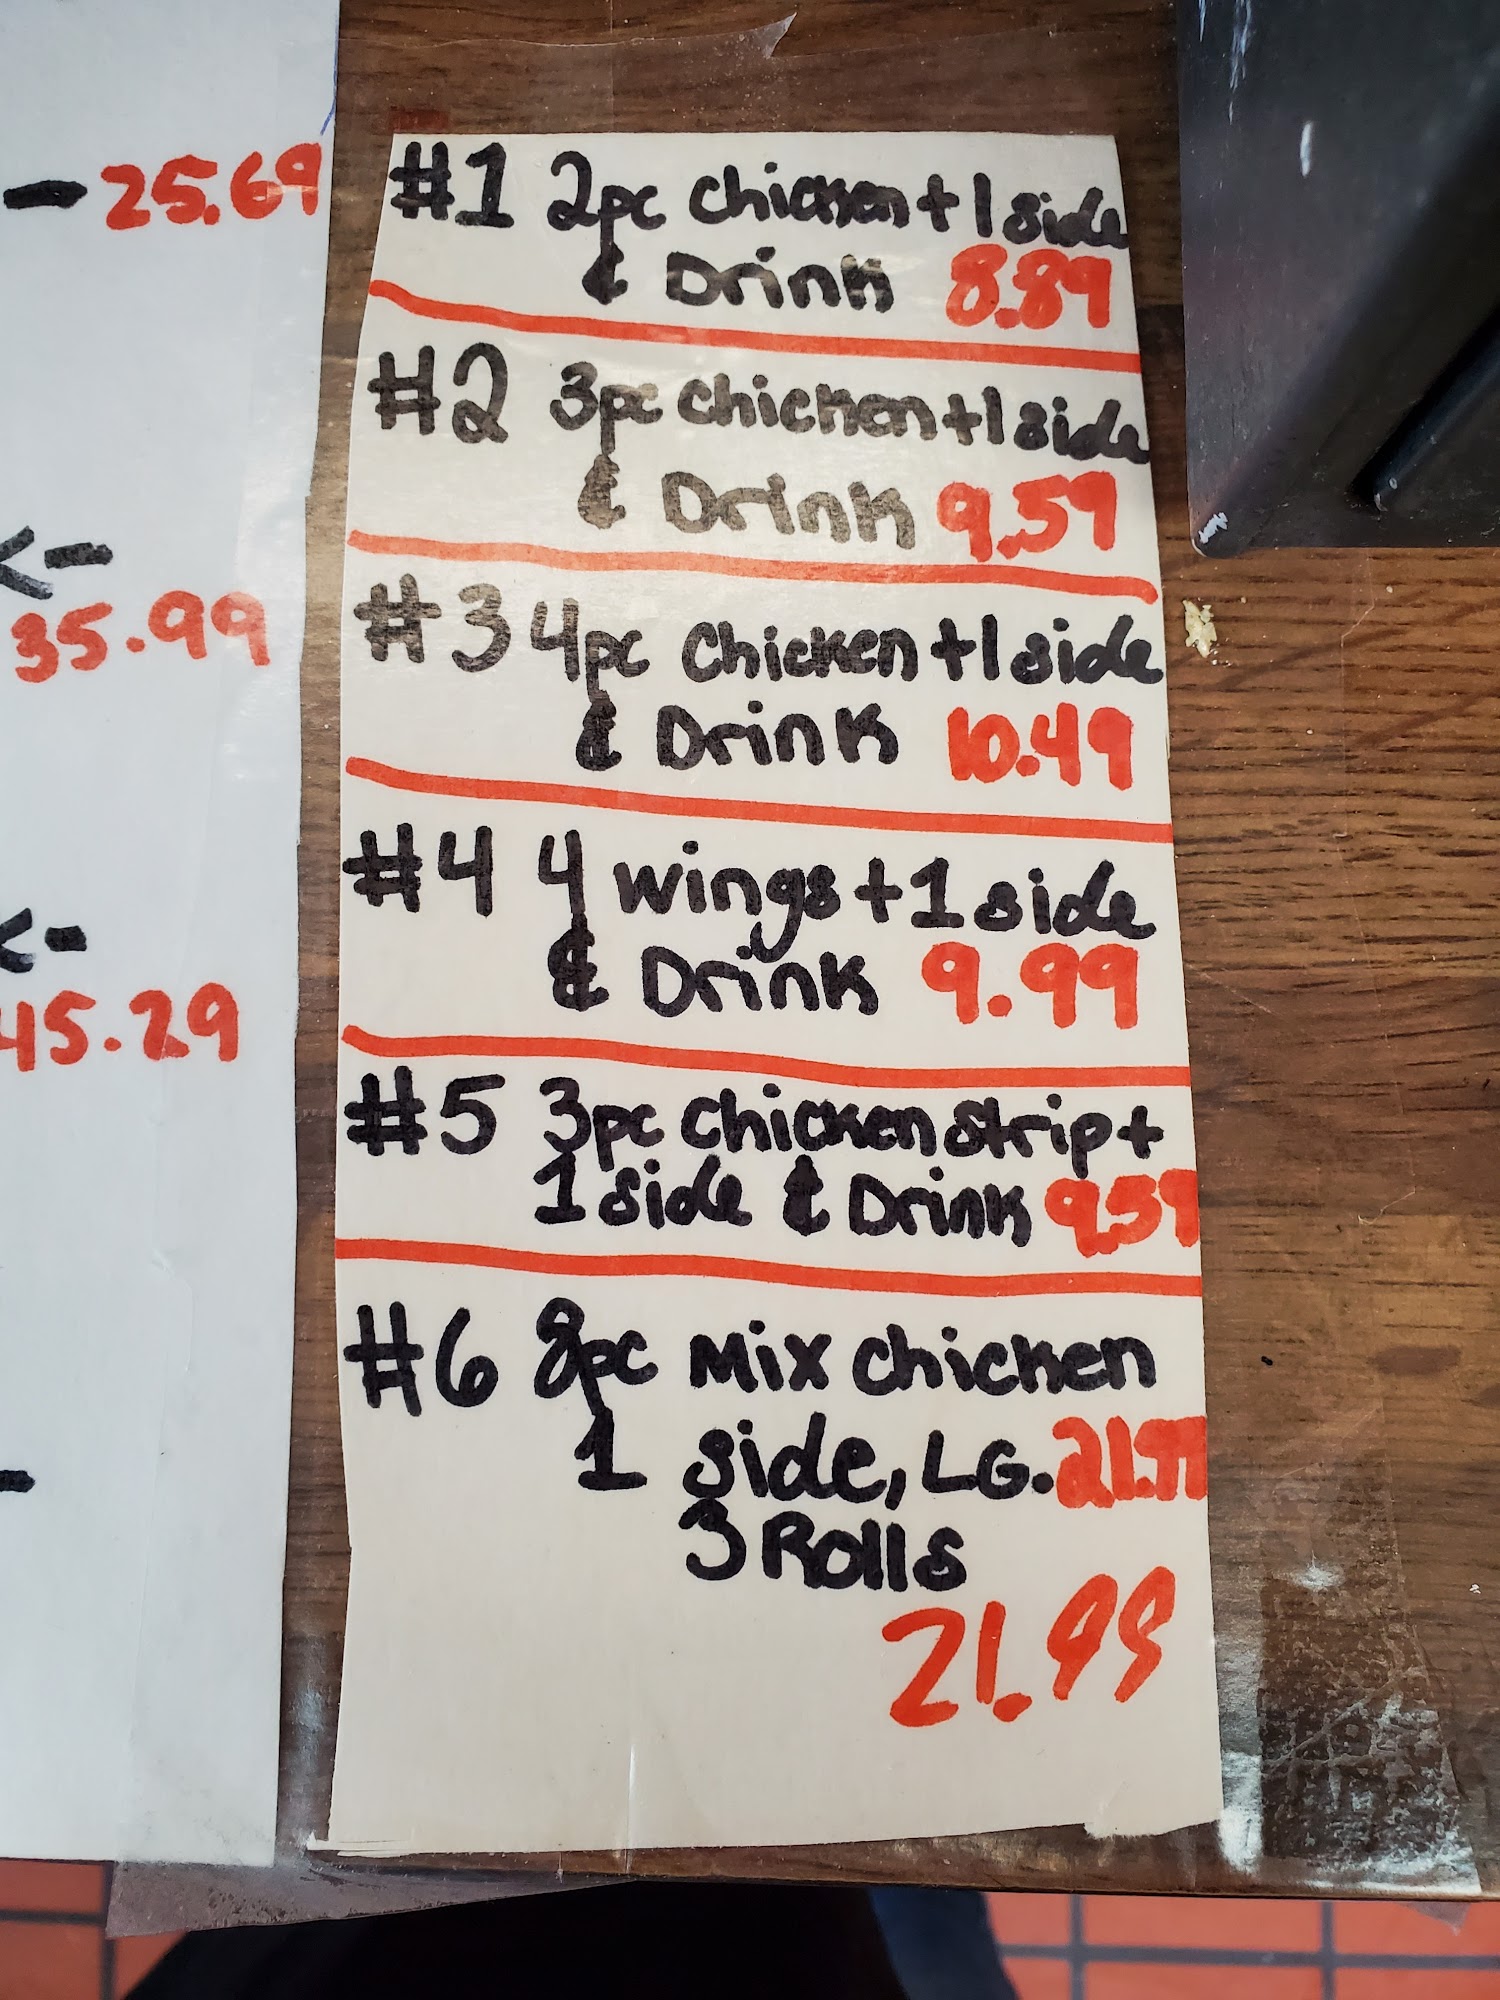 - 25.69
<-
35.99
<-
45.29
-
#1 2pc chicken + 1 side
& Drink 8.89
#2 3pc chicken + 1 side
& Drink 9.59
#3 4pc chicken + 1 side
& Drink 10.49
#4 4 wings + 1 side
& Drink 9.99
#5 3pc chicken strip +
1 side & Drink 9.59
#6 8pc Mix chicken
1 side, LG. 21.99
3 Rolls
21.99